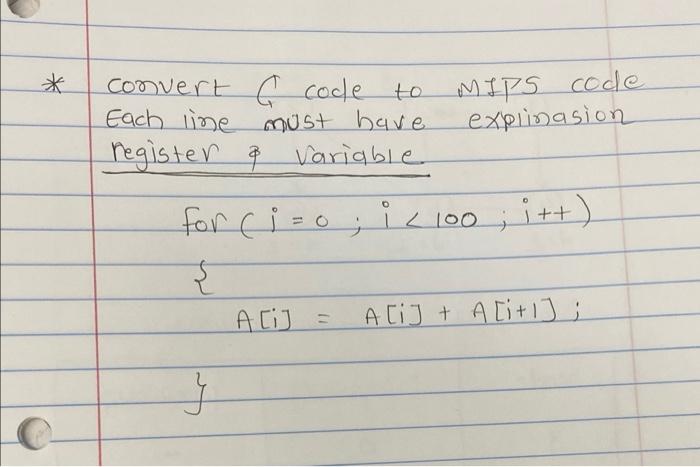 * convert C code to MIPS code
Each line must have explinasion
register & variable
for ( i = 0 ; i < 100 ; i ++ )
{
A [i] = A [i] + A [i+1] ;
}